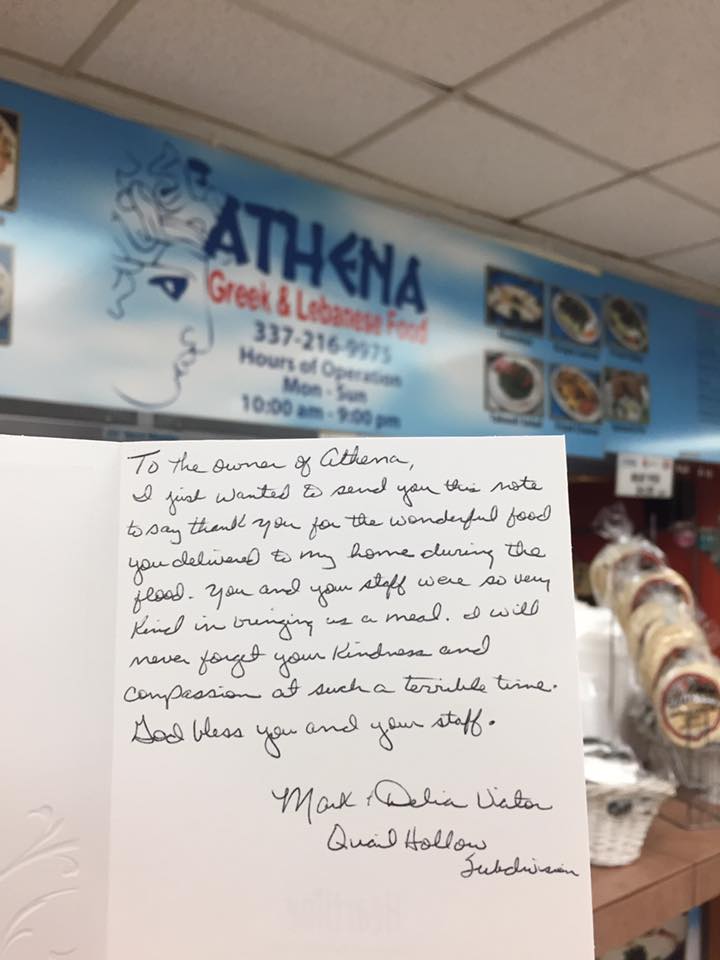 ATHENA
Greek & Lebanese Food
337-216-9975
Hours of Operation
Mon - Sun
10:00 am - 9:00 pm
To the owner of Athena,
I just wanted to send you this note
to say thank you for the wonderful food
you delivered to my home during the
flood. You and your staff were so very
kind in bringing us a meal. I will
never forget your kindness and
compassion at such a terrible time.
God bless you and your staff.
Mark & Delia Viator
Quail Hollow
Subdivision